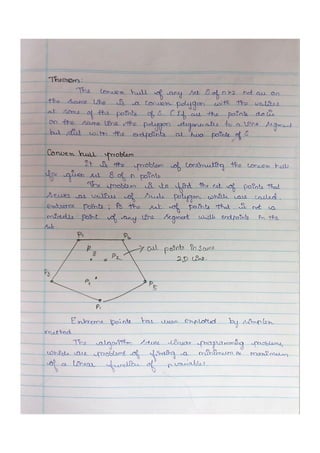 Theorem:
The convex hull of any set S of n>2 not all on
the same line is a convex polygon with the vertices
at some of the points of S. (If all the points do lie
on the same line, the polygon degenerates to a line segment
but still with the endpoints at two points of S
Convex hull problem
It is the problem of constructing the convex hull
for given set S of n points
The problem is to find the set of points that
serves as vertices of such polygon which are called
extreme points; the set of points that is not a
middle point of any line segment with endpoints in the
set.
P7 P6
P8 P2 all points in same
2D line.
P3 P4 P5
P1
Extreme points has been exploited by simplex
method
The algorithm solve linear programming problems,
which are problems of finding a minimum or maximum
of a linear function of n variables